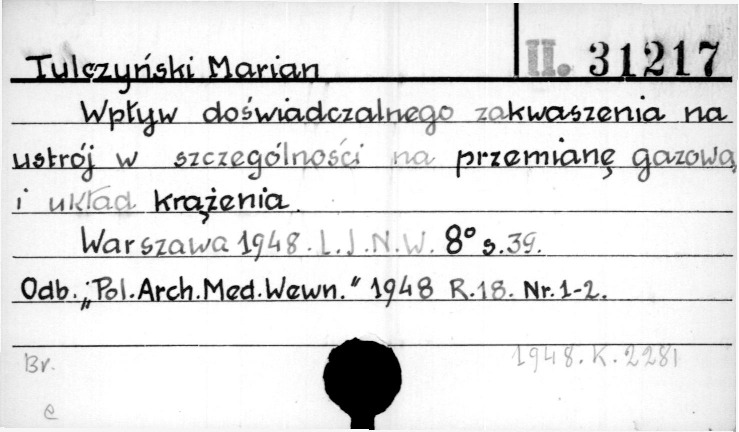 Tulczyński Marian
II. 31217
Wpływ doświadczalnego zakwaszenia na
ustrój w szczególności na przemianę gazową
i układ krążenia.
Warszawa 1948. L.J.N.W. 8° s.39.
Odb. „Pol.Arch.Med.Wewn." 1948 R.18. Nr.1-2.
Br.
1948.K.2281
e